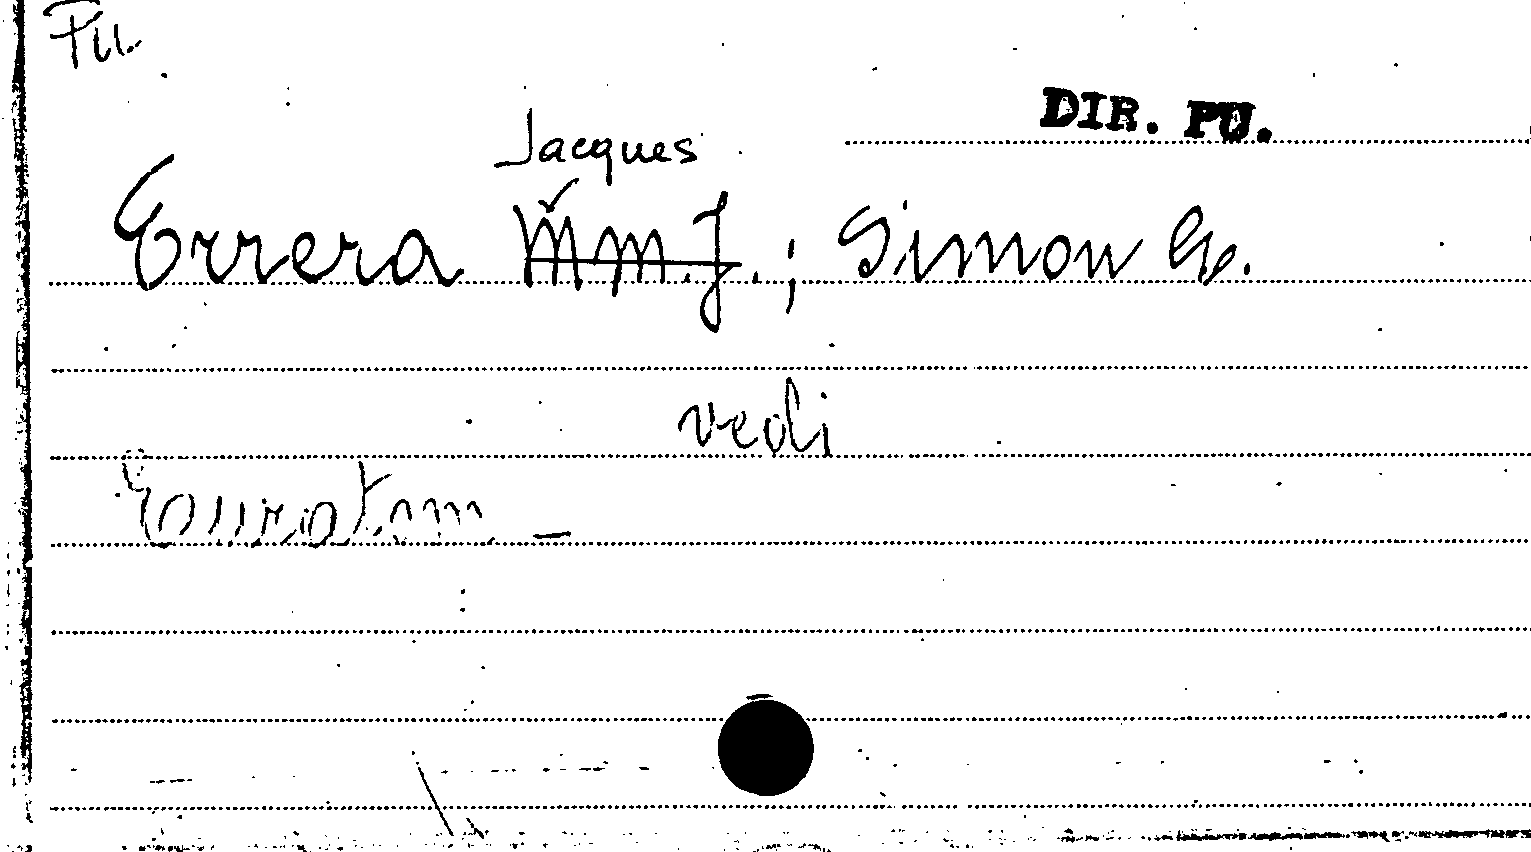 Pu
DIR. PU.
Jacques
Errera M.M.J.; Simon G.
vedi
Euratom -